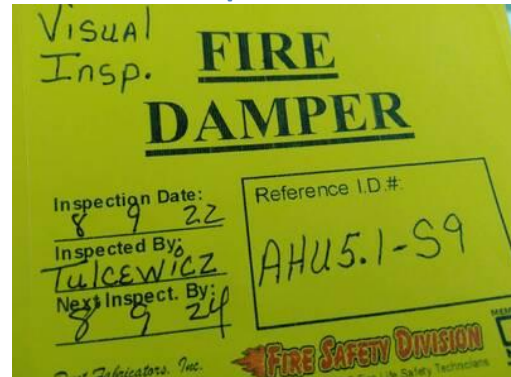 VISUAL
Insp.
FIRE
DAMPER
Inspection Date:
8 9 22
Inspected By:
TULCEWICZ
Next Inspect. By:
8 9 24
Reference I.D.#:
AHU5.1-S9
Fabricators, Inc.
FIRE SAFETY DIVISION
Life Safety Technicians